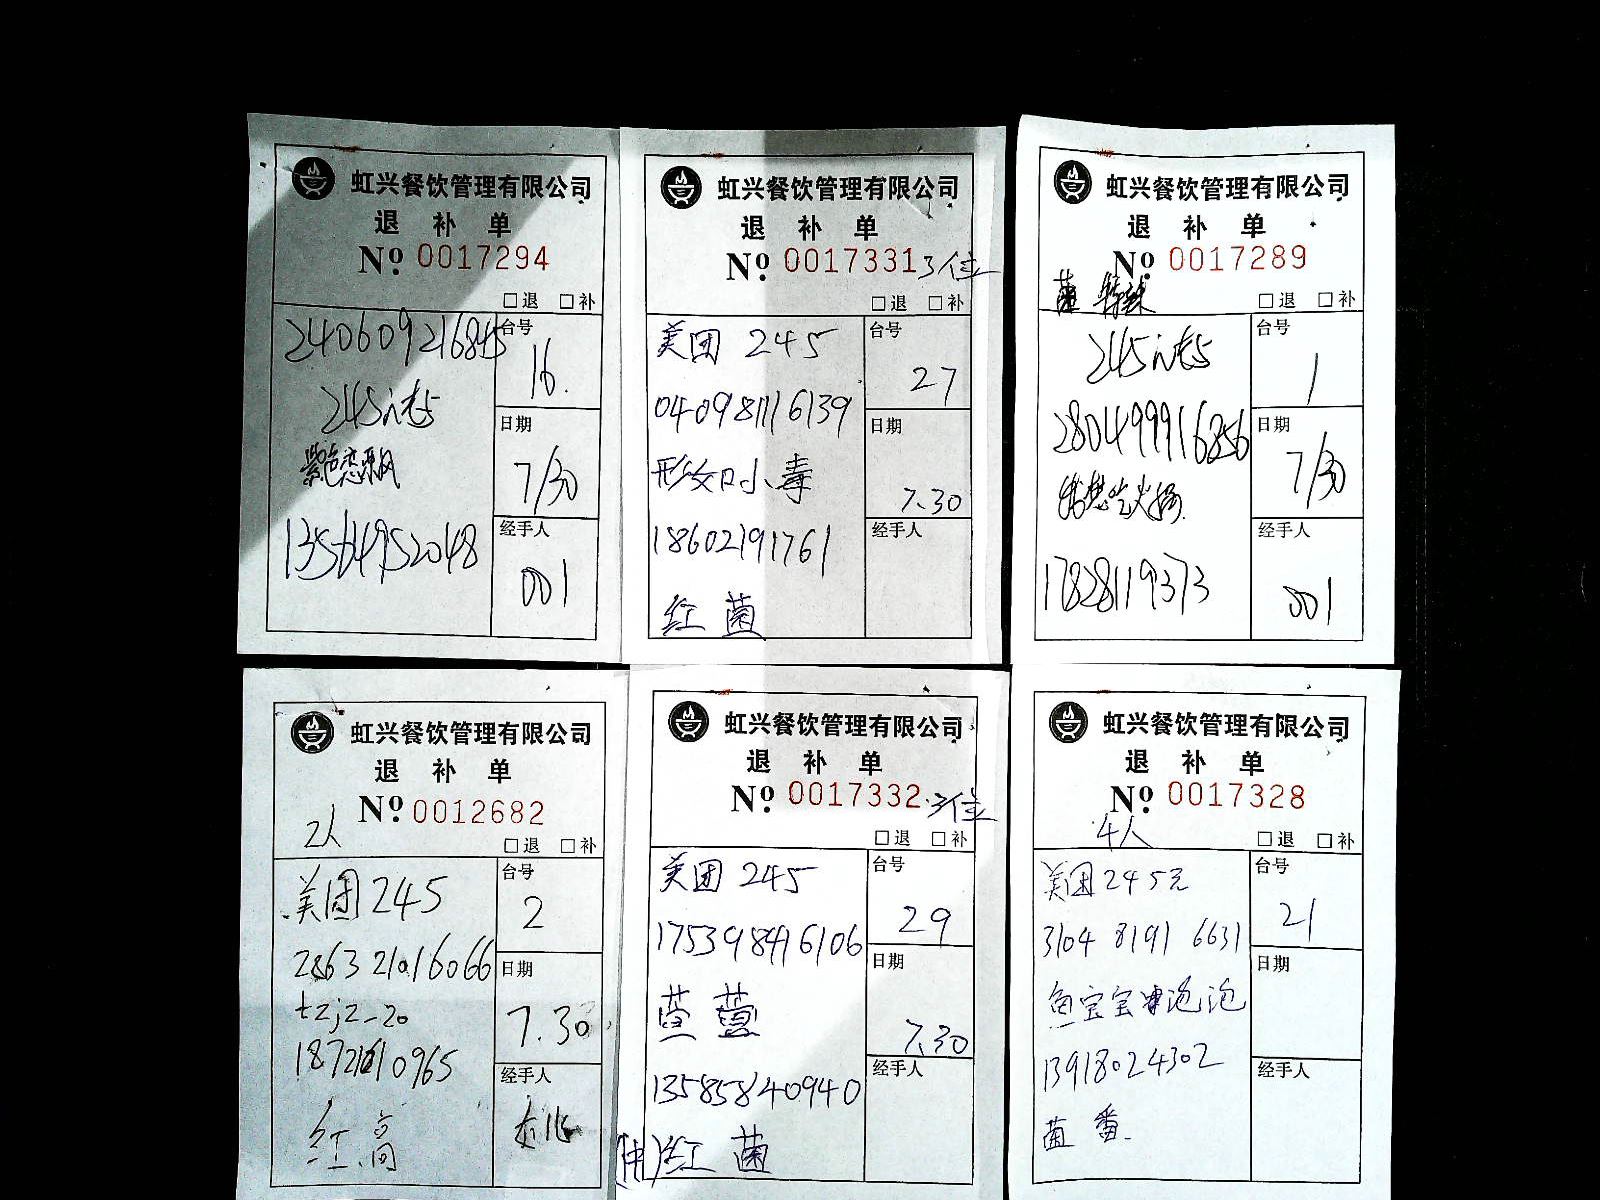 虹兴餐饮管理有限公司
退 补 单
No. 0017294
□退 □补
240609216845
台号
16.
245
日期
7/30
紫色恋风
13564952048
经手人
001
虹兴餐饮管理有限公司
退 补 单
No. 0017331 3位
□退 □补
美团 245
台号
27
040981116139
日期
7.30
小毒
18602191761
经手人
红 菌
虹兴餐饮管理有限公司
退 补 单
No. 0017289
□退 □补
菌
245
台号
1
280499916856
日期
7/30
想吃火锅
17828119373
经手人
001
虹兴餐饮管理有限公司
退 补 单
No. 0012682
2人
□退 □补
美团 245
台号
2
2863 21016066
日期
7.30
tzjz-20
经手人
红 高
虹兴餐饮管理有限公司
退 补 单
No. 0017332 3位
□退 □补
美团 245
台号
29
日期
7.30
13585840940
经手人
红 菌
虹兴餐饮管理有限公司
退 补 单
No. 0017328
4人
□退 □补
美团 245元
台号
21
3104 8191 6631
日期
鱼宝宝 泡泡
13918024302
经手人
菌 番